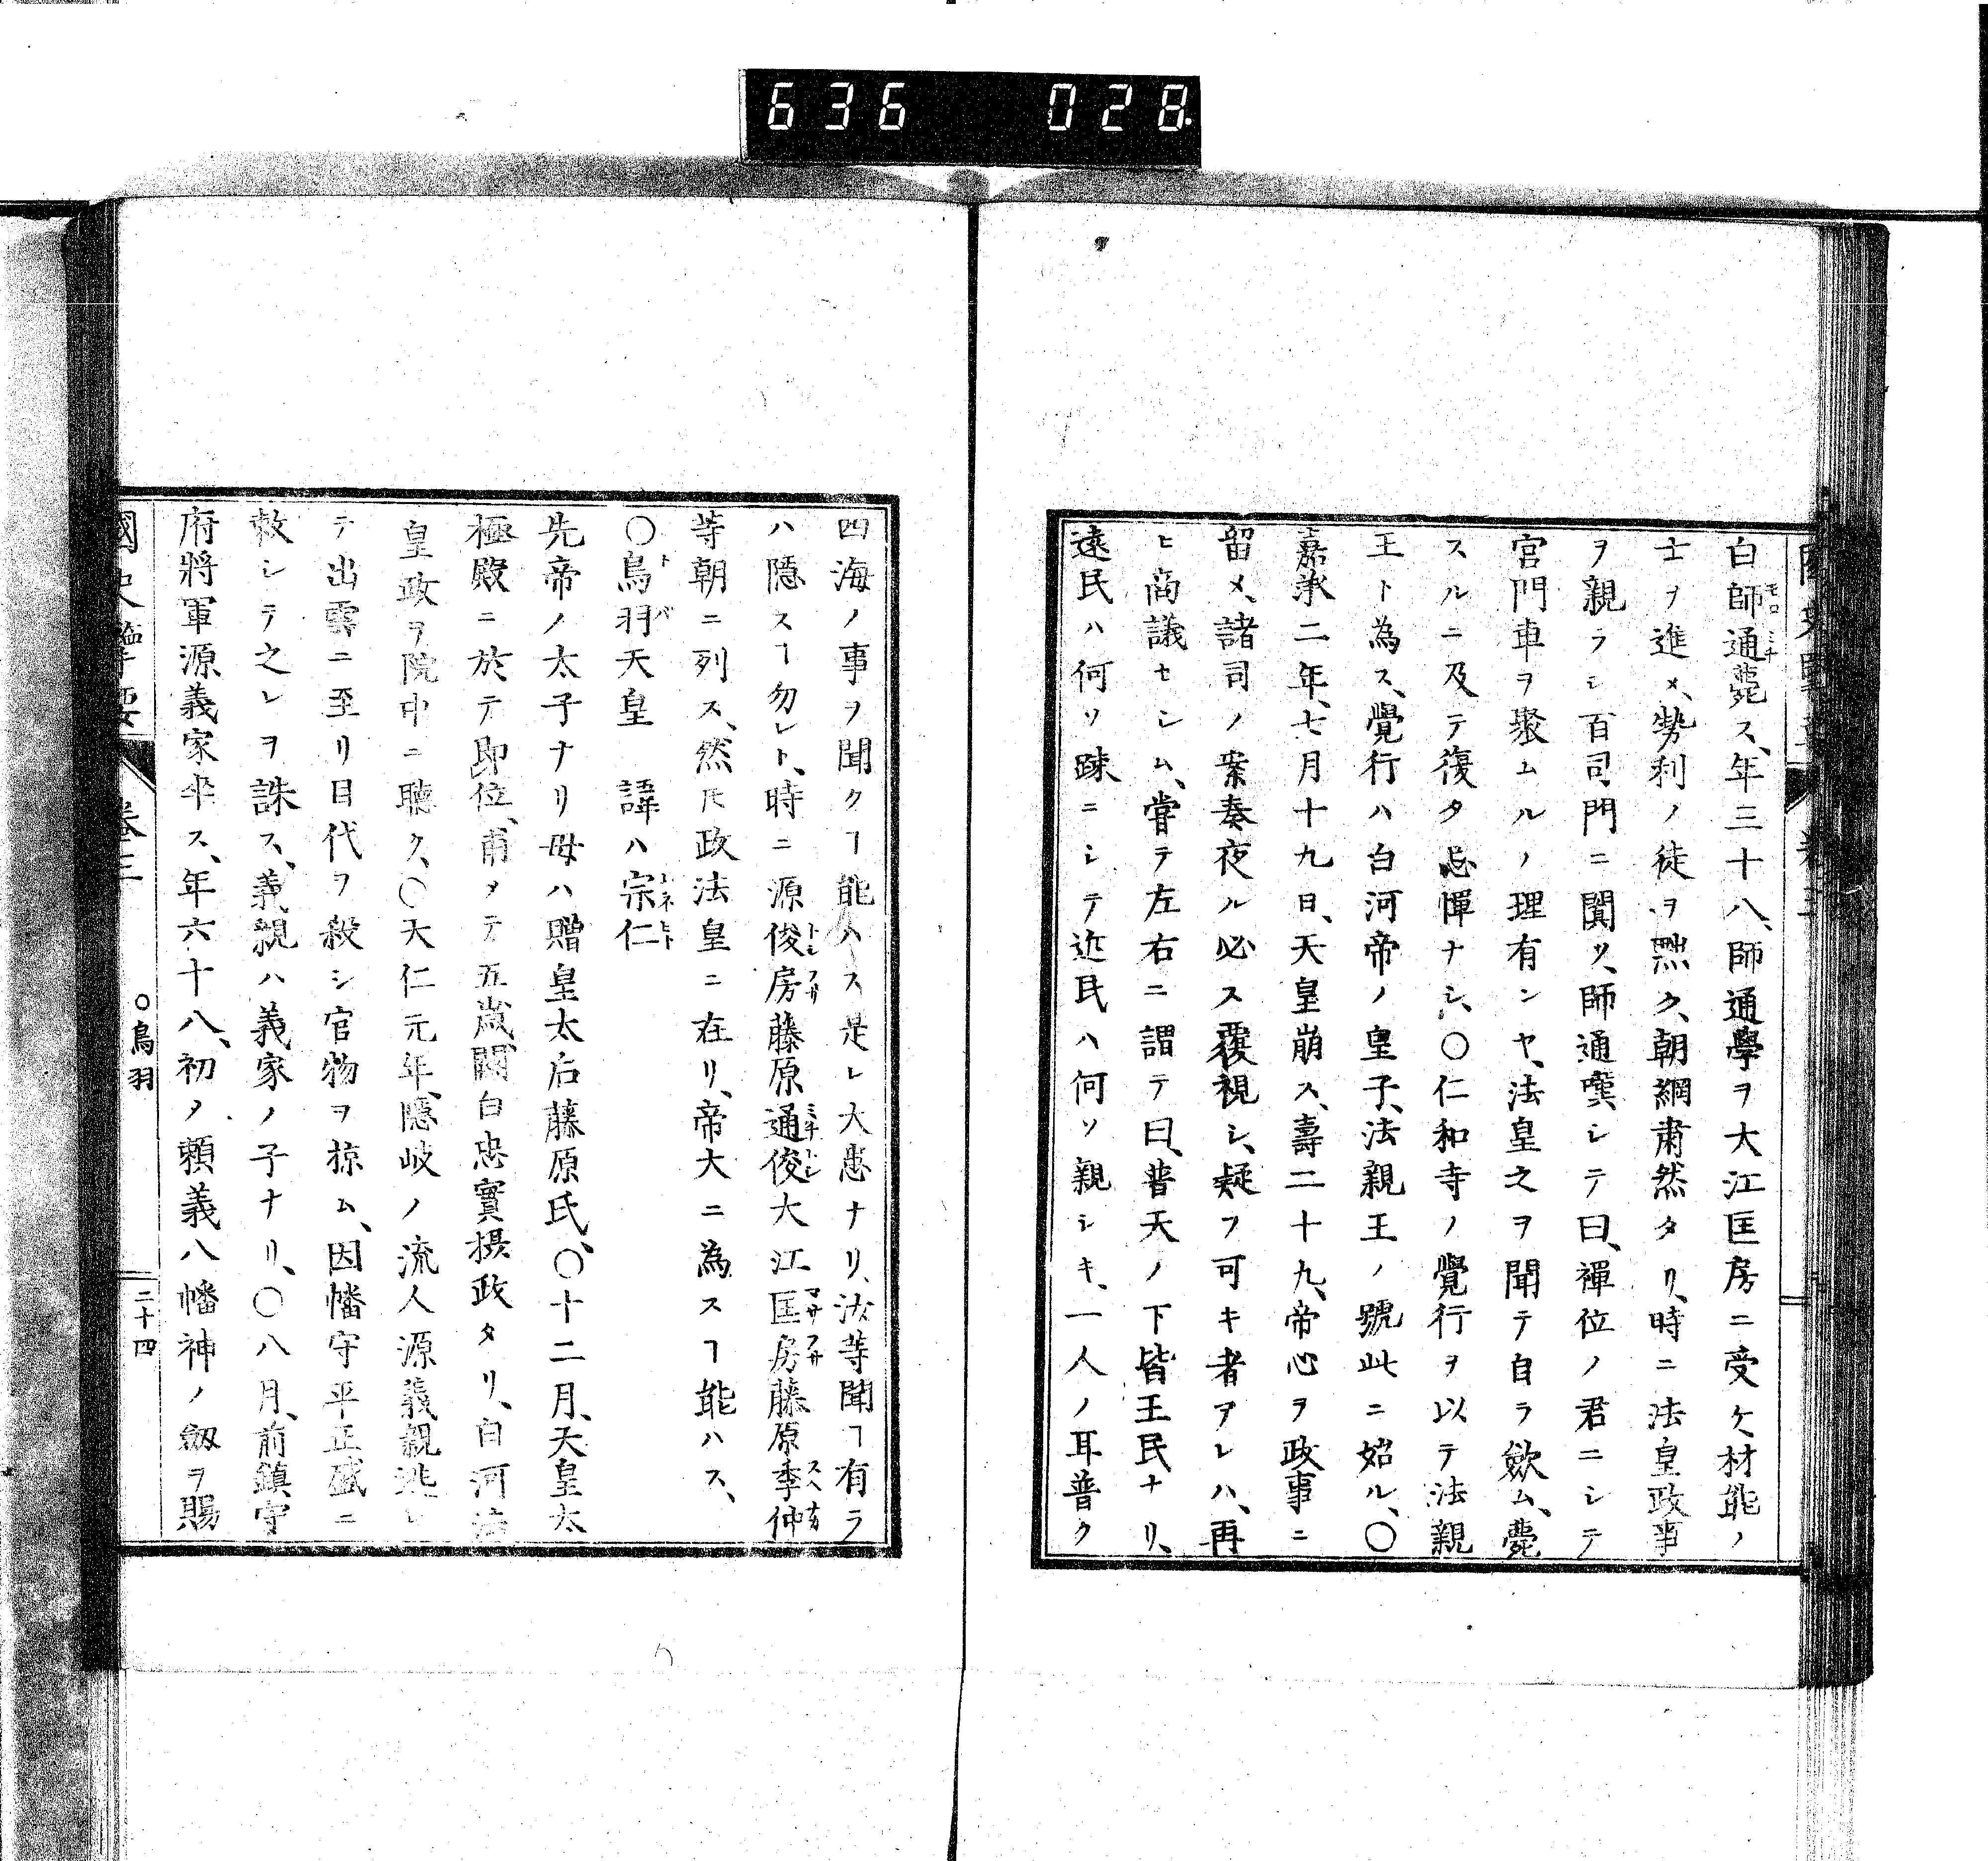 636 028
白師通薨ス、年三十八、師通學ヲ大江匡房ニ受ケ材能ノ
士ヲ進メ、勢利ノ徒ヲ黜ク、朝綱肅然タリ、時ニ法皇政事
ヲ親ラシ百司門ニ闐ツ、師通嘆シテ曰、禪位ノ君ニシテ
宮門車ヲ聚ムルノ理有ンヤ、法皇之ヲ聞テ自ラ歛ム、薨
スルニ及テ復タ忌憚ナシ、〇仁和寺ノ覺行ヲ以テ法親
王ト為ス、覺行ハ白河帝ノ皇子、法親王ノ號此ニ始ル、〇
嘉承二年、七月十九日、天皇崩ス、壽二十九、帝心ヲ政事ニ
留メ、諸司ノ案奏夜ル必ス覆視シ、疑フ可キ者ヲレハ、再
ヒ商議セシム、嘗テ左右ニ謂テ曰、普天ノ下皆王民ナリ、
遠民ハ何ソ疎ニシテ近民ハ何ソ親シキ、一人ノ耳普ク
四海ノ事ヲ聞クヿ能ハス是レ大患ナリ、汝等聞ヿ有ラ
ハ隱スヿ勿レト、時ニ源俊房藤原通俊大江匡房藤原季仲
等朝ニ列ス、然𪜈政法皇ニ在リ、帝大ニ為スヿ能ハス、
〇鳥羽天皇 諱ハ宗仁
先帝ノ太子ナリ母ハ贈皇太后藤原氏、〇十二月、天皇太
極殿ニ於テ即位、甫メテ五歳、關白忠實摂政タリ、白河法
皇政ヲ院中ニ聽ク、〇天仁元年、隱岐ノ流人源義親逃レ
テ出雲ニ至リ目代ヲ殺シ官物ヲ掠ム、因幡守平正盛ニ
敕シテ之レヲ誅ス、義親ハ義家ノ子ナリ、〇八月、前鎮守
府將軍源義家卒ス、年六十八、初メ頼義八幡神ノ劔ヲ賜
國史擥要 卷三 〇鳥羽 二十四